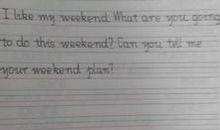 I like my weekend. What are you going
to do this weekend? Can you tell me
your weekend plan?